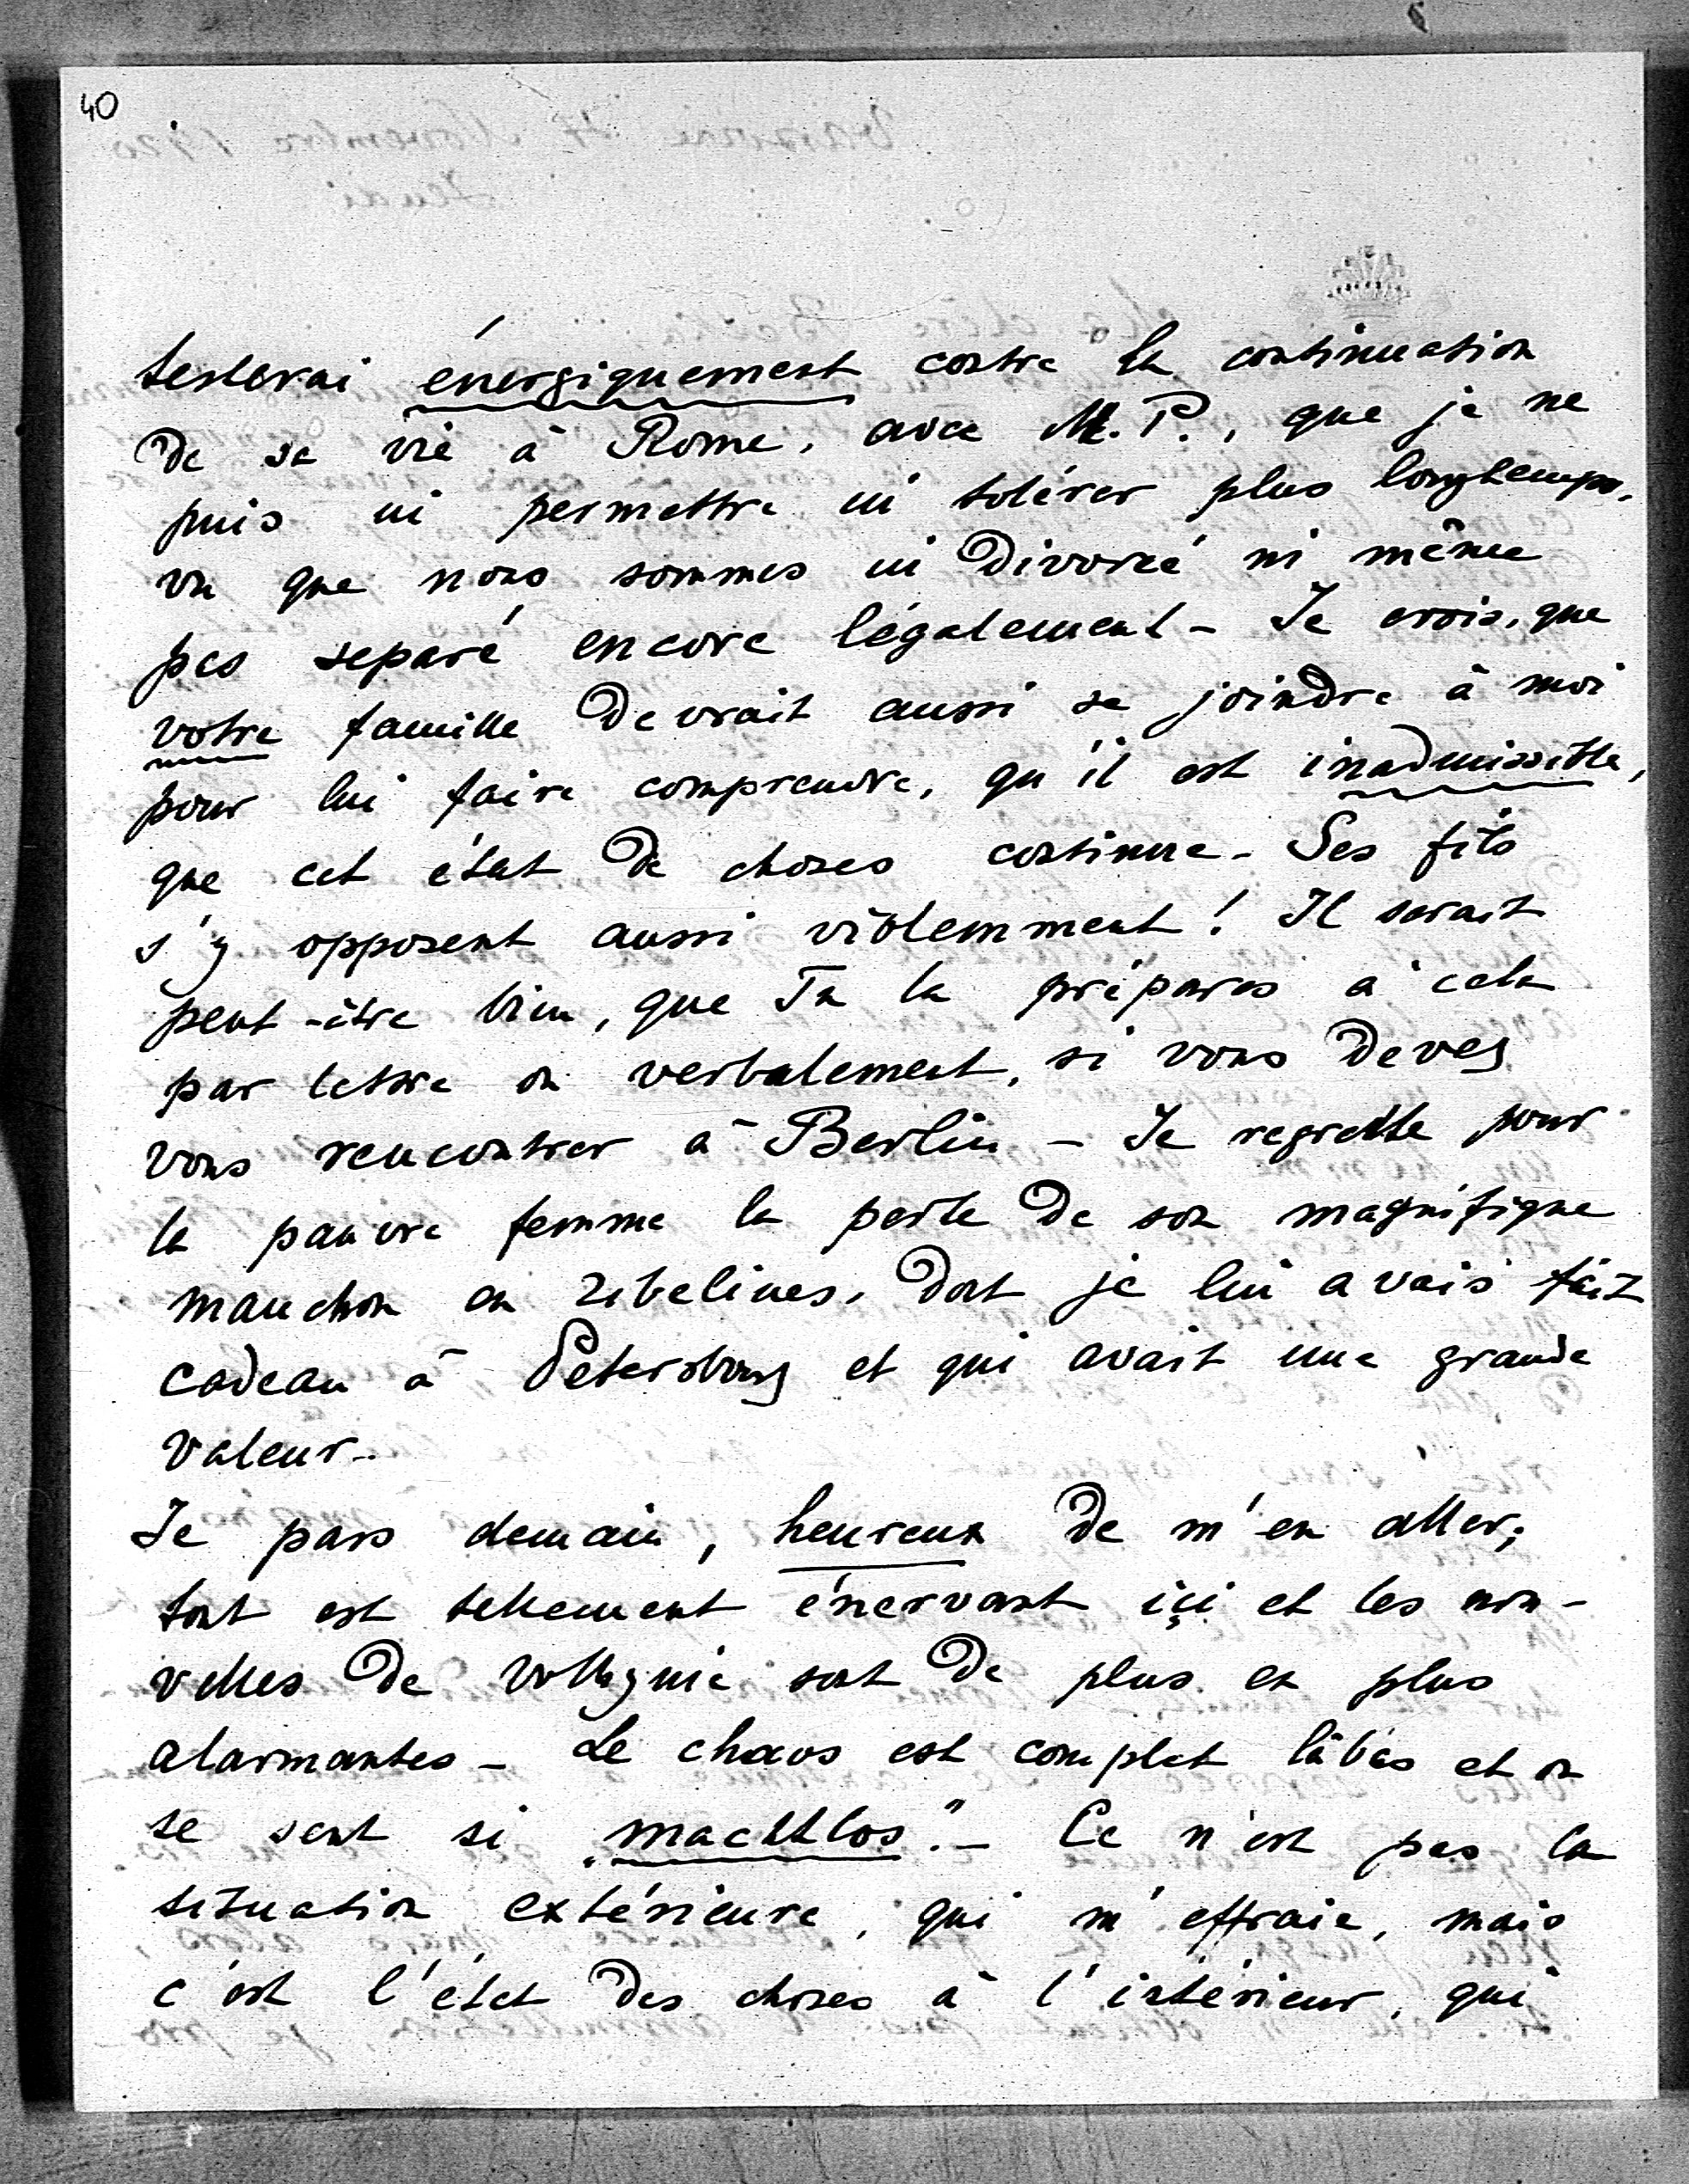 40
testerai énergiquement contre la continuation
de sa vie à Rome, avec M. P., que je ne
puis ni permettre ni tolérer plus longtemps,
vu que nous sommes ni divorcé ni même
pas separé encore légalement - Je crois, que
votre famille devrait aussi se joindre à moi
pour lui faire comprendre, qu'il est inadmissible,
que cet état de choses continue - Ses fils
s'y opposent aussi violemment! Il serait
peut-être bien, que Tu la prépares à cela
par lettre ou verbalement, si vous devez
vous rencontrer à Berlin - Je regrette pour
la pauvre femme la perte de son magnifique
manchon en zibelines, dont je lui avais fait
cadeau à Petersbourg et qui avait une grande
valeur -
Je pars demain, heureux de m'en aller;
tout est tellement énervant içi et les nou-
velles de Volhynie sont de plus en plus
alarmantes - Le chaos est complet làbas et on
se sent si „machtlos" - Ce n'est pas la
situation extérieure, qui m'effraie, mais
c'est l'état des choses à l'intérieur, qui